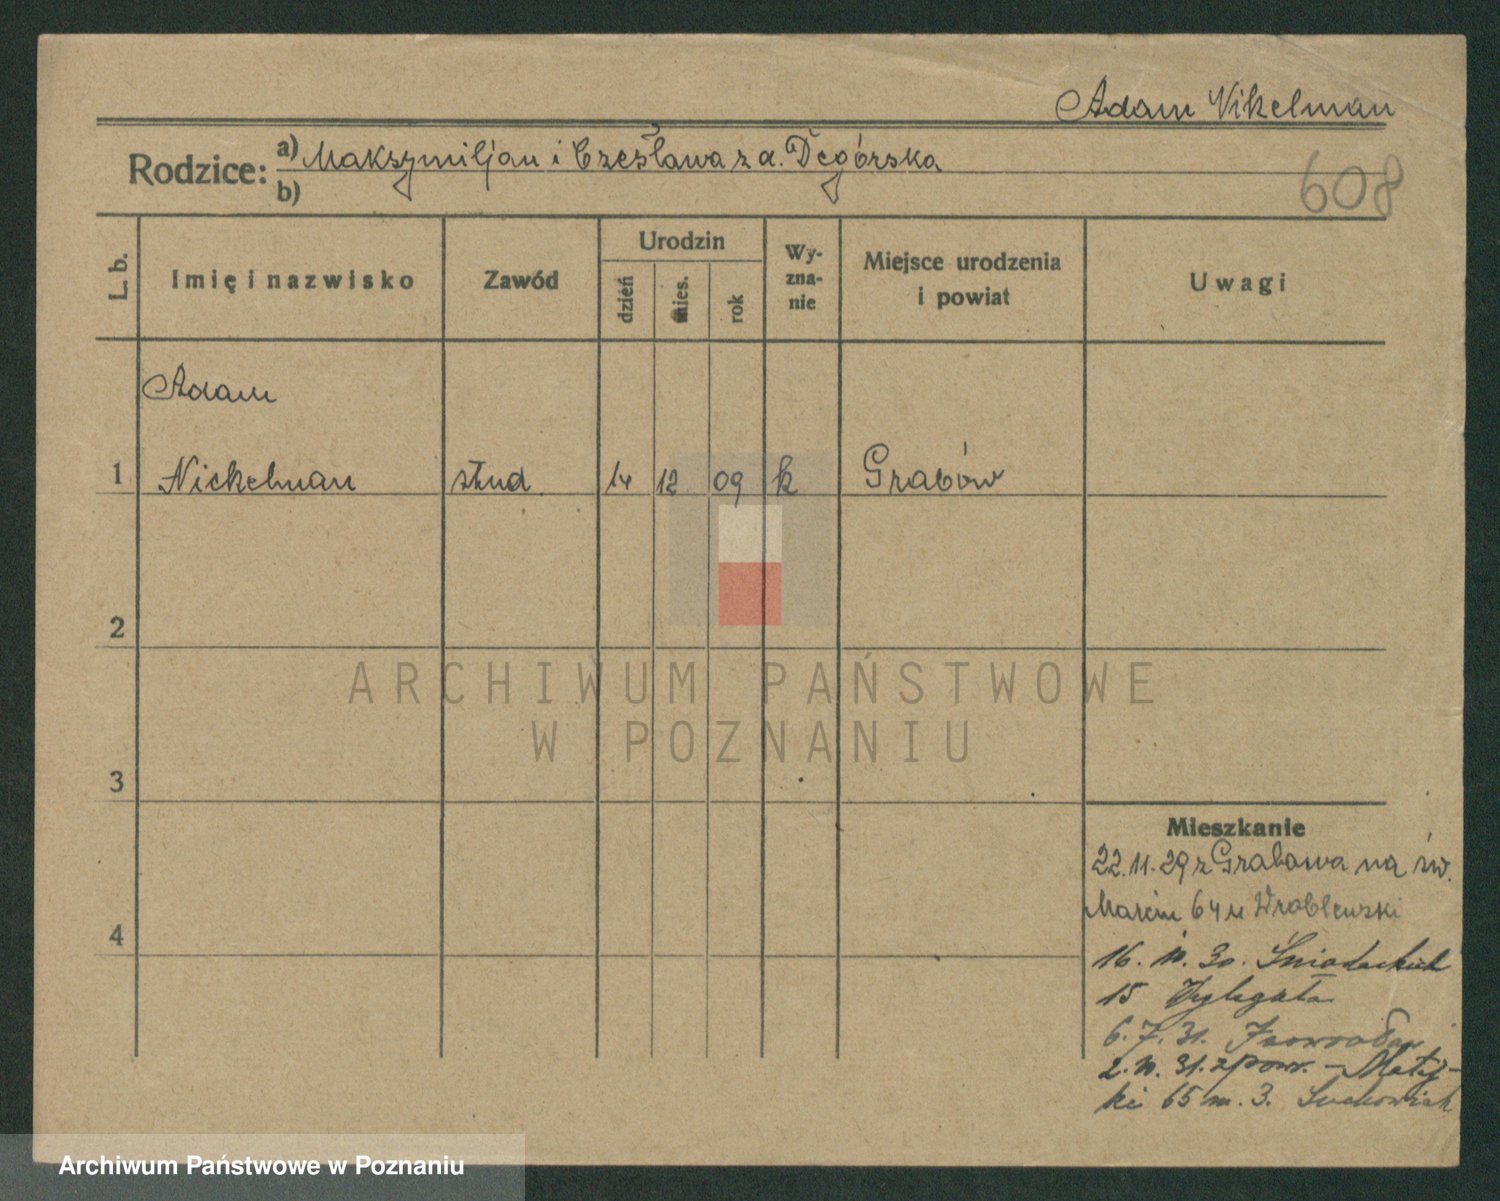 Adam Nikelman
Rodzice: a) Maksymiljan i Czesława z d. Degórska
b)
608
L. b.
Imię i nazwisko
Zawód
Urodzin
dzień
mies.
rok
Wy-
zna-
nie
Miejsce urodzenia
i powiat
Uwagi
Adam
1 Nickelman stud. 14 12 09 k Grabów
2
ARCHIWUM PAŃSTWOWE
W POZNANIU
3
Mieszkanie
22.11.29 z Grabowa na św.
4
Marcin 64 u Wroblewski
16. 30. Śniadeckich
15
6.7.31. Inowrocław
2. 31. z pow. - Matej-
ki 65 m. 3. Suchowiak
Archiwum Państwowe w Poznaniu